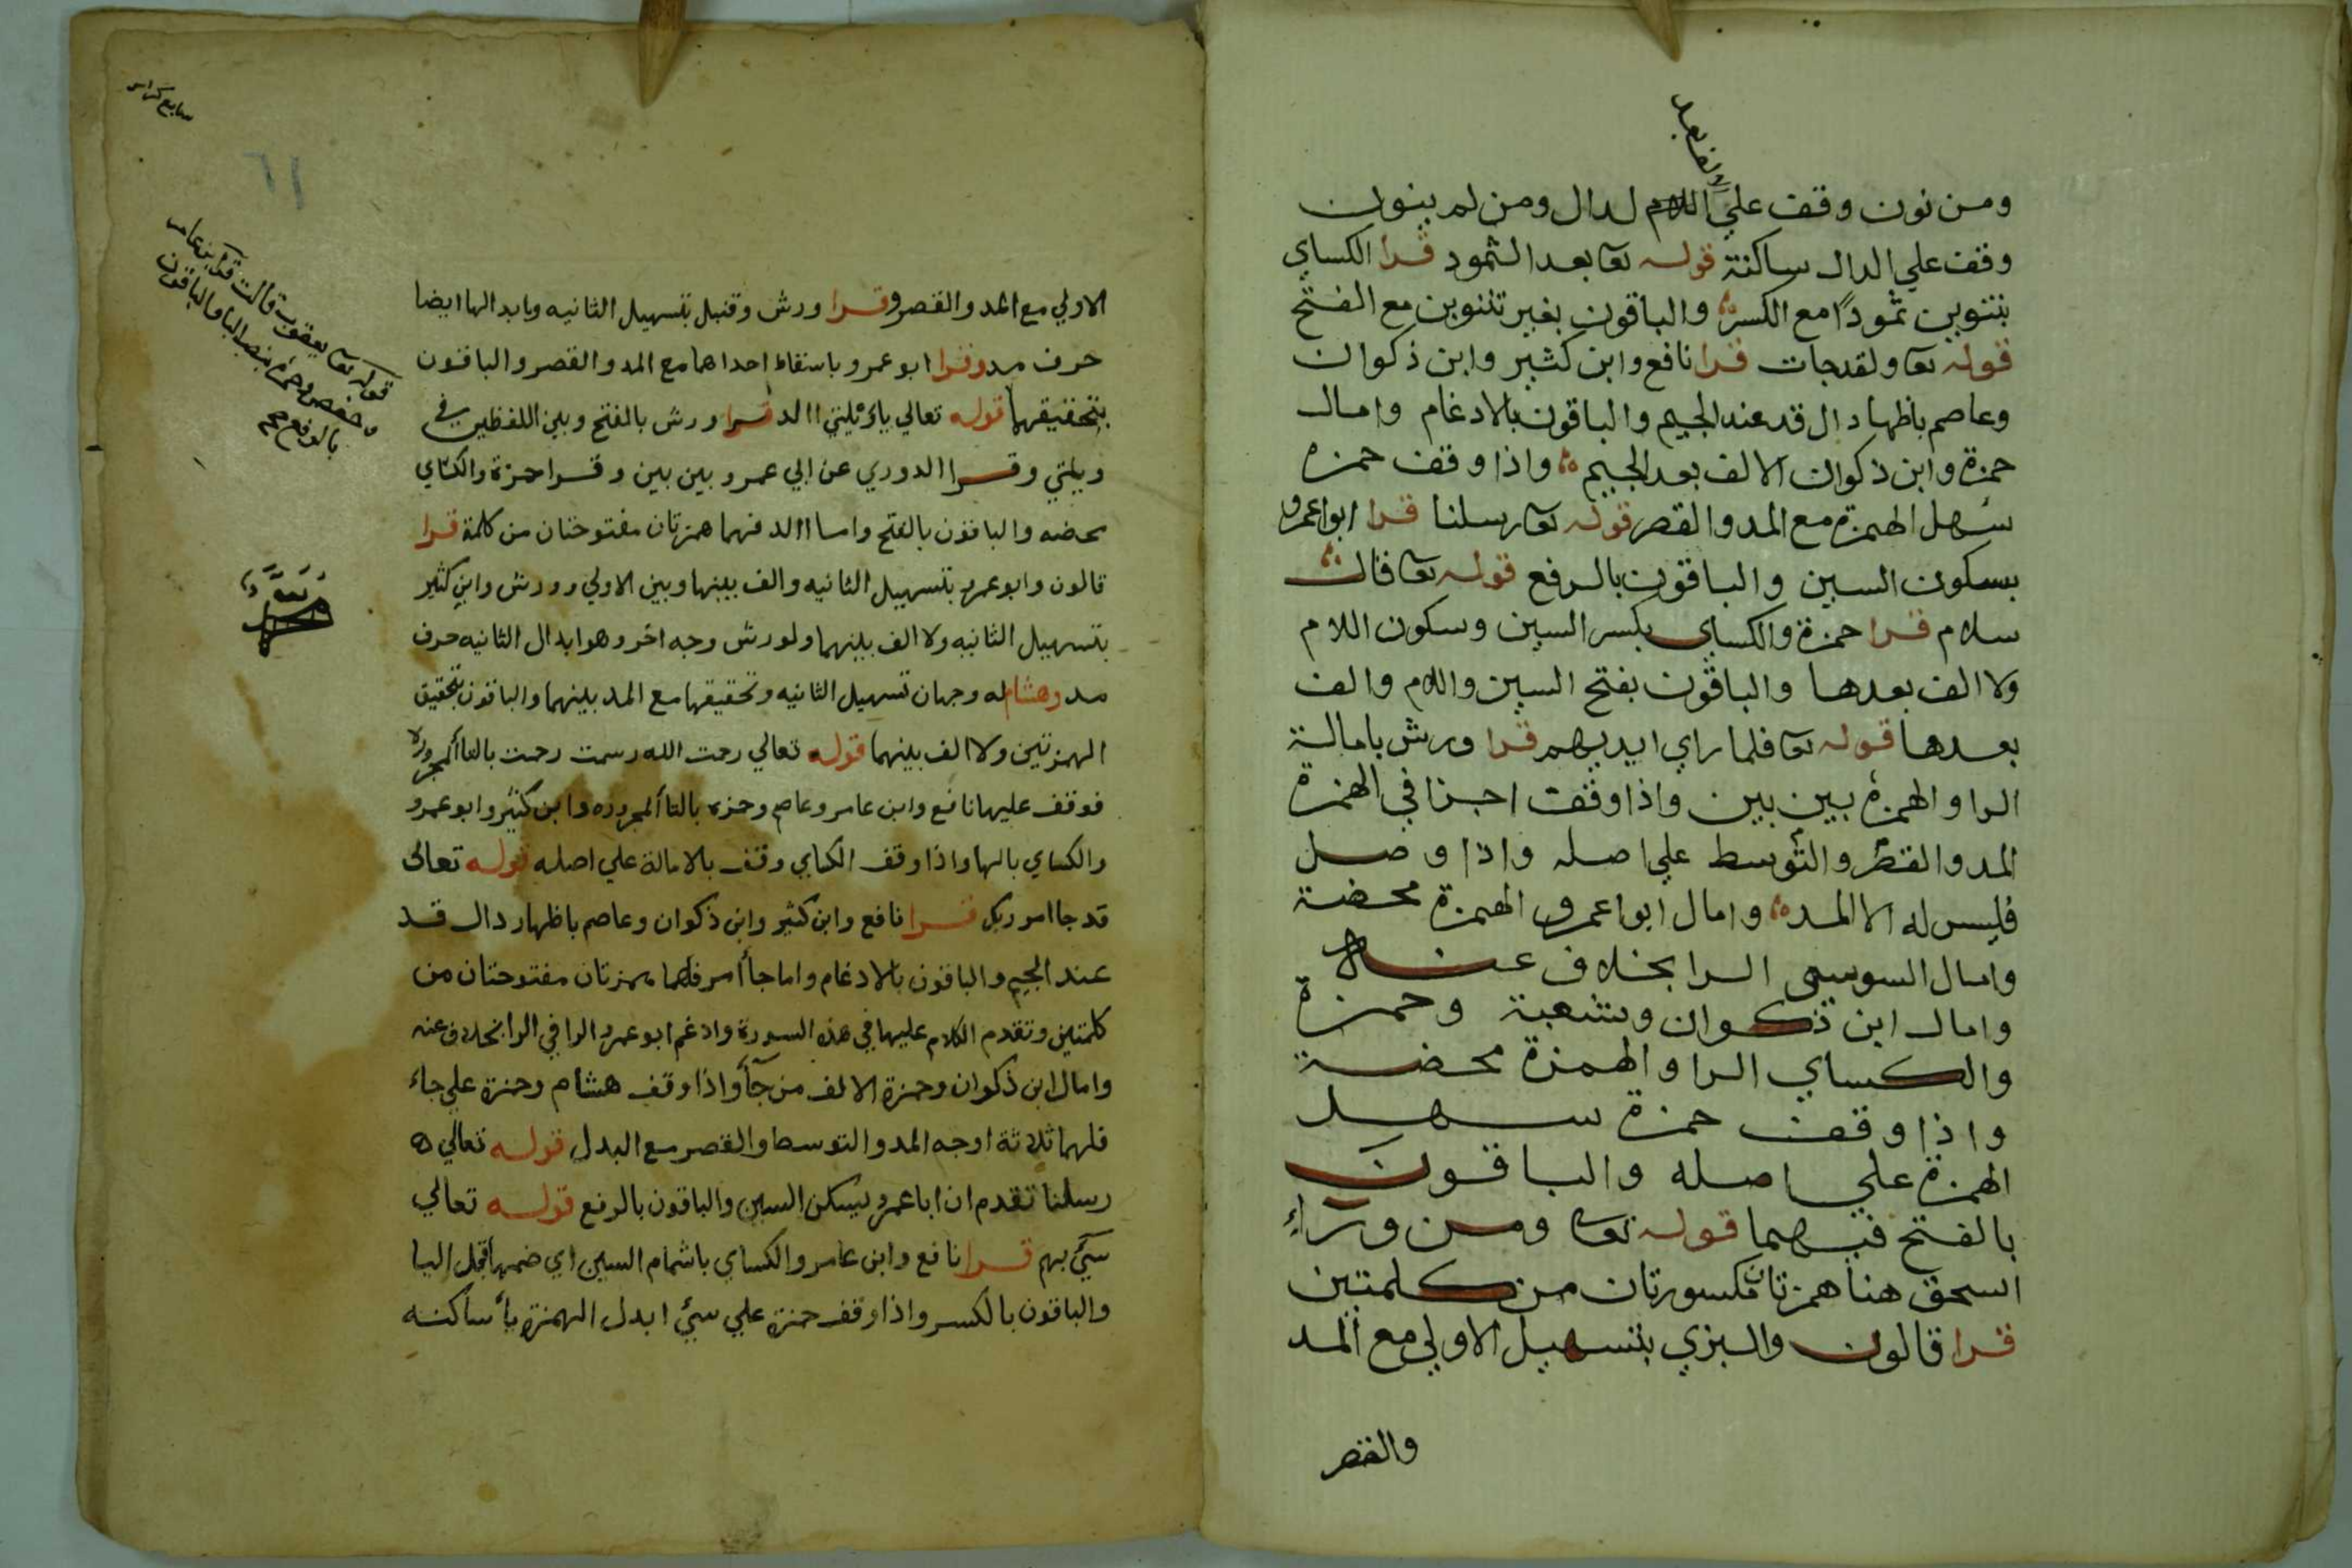 الالف بعد
ومن نون وقف علي اللام لدال ومن لم ينون
وقف علي الدال ساكنة قوله تعا بعدا لثمود قرا الكساي
بتنوين ثمودًا مع الكسر والباقون بغير تننوين مع الفتح
قوله تعا ولقد جات قرا نافع وابن كثير وابن ذكوان
وعاصم باظهار دال قد عند الجيم والباقون بالادغام وامال
حمزة وابن ذكوان الالف بعد الجيم واذا وقف حمزه
سهل الهمزة مع المد والقصر قوله تعا رسلنا قرا ابواعمرو
بسكون السين والباقون بالرفع قوله تعا قال
سلام قرا حمزة والكساي بكسر السين وسكون اللام
ولا الف بعدها والباقون بفتح السين واللام والف
بعدها قوله تعا فلما راي ايديهم قرا ورش بامالة
الرا والهمزة بين بين واذا وقفت اجزنا في الهمزة
المد والقصر والتوسط علي اصله واذا وصل
فليس له الا المد وامال ابواعمرو الهمزة محضة
وامال السوسي الرا بخلاف عنه
وامال ابن ذكوان وشعبة وحمزة
والكساي الرا والهمزة محضة
واذا وقف حمزة سهل
الهمزة علي اصله والباقون
بالفتح فيهما قوله تعا ومن ورآء
اسحق هنا همزتان مكسورتان من كلمتين
قرا قالون والبزي بتسهيل الاولي مع المد
والقصر
سابع كراس
٦١
الاولي مع المد والقصر وقرا ورش وقنبل بتسهيل الثانيه وبابدالها ايضا
حرف مد وقرا ابو عمرو باسقاط احداهما مع المد والقصر والباقون
بتحقيقهما قوله تعالي ياويلتي االد قرا ورش بالفتح وبين اللفظين في
ويلتي وقرا الدوري عن ابي عمرو بين بين وقرا حمزة والكساي
محضه والباقون بالفتح واما االد فهما همزتان مفتوحتان من كلمة قرا
قالون وابو عمرو بتسهييل الثانيه والف بينها وبين الاولي وورش وابن كثير
بتسهييل الثانيه ولا الف بينهما ولورش وجه اخر وهو ابدال الثانيه حرف
مد وهشام له وجهان تسهيل الثانيه وتحقيقها مع المد بينهما والباقون بتحقيق
الهمزتين ولا الف بينهما قوله تعالي رحمت الله رسمت رحمت بالتا المجروره
فوقف عليها نافع وابن عامر وعاصم وحمزه بالتا المجروره وابن كثير وابو عمرو
والكساي بالها واذا وقف الكساي وقف بالامالة علي اصله قوله تعالى
قد جا امر ربك قرا نافع وابن كثير وابن ذكوان وعاصم باظهار دال قد
عند الجيم والباقون بالادغام واما جاأ امر فهما همزتان مفتوحتان من
كلمتين وتقدم الكلام عليها في هذه السورة وادغم ابو عمرو الرا في الرا بخلاف عنه
وامال ابن ذكوان وحمزة الالف من جآأ واذا وقف هشام وحمزة علي جاء
فلهما ثلاثة اوجه المد والتوسط والقصر مع البدل قوله تعالي
رسلنا تقدم ان ابا عمرو يسكن السين والباقون بالرفع قوله تعالي
سيئ بهم قرا نافع وابن عامر والكساي باشمام السين اي ضمها قبل اليا
والباقون بالكسر واذا وقف حمزة علي سيئ ابدل الهمزة يأ ساكنه
قوله تعا يعقوب قالت قرا ابن عامر
وحفص وحمزة بنصب البا والباقون
بالرفع صح